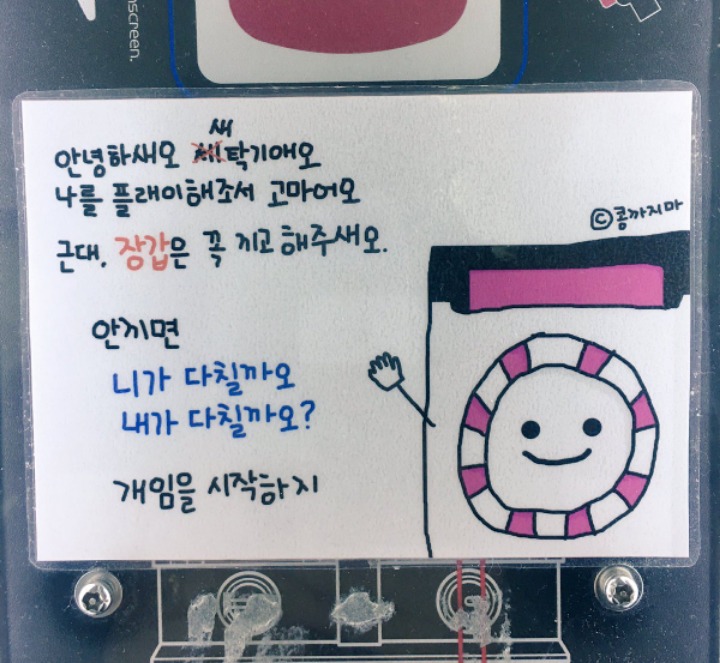 nscreen.
안녕하새오 새탁기애오
나를 플래이해조서 고마어오
근대, 장갑은 꼭 끼고 해주새오.
©콩까지마
안끼면
니가 다칠까오
내가 다칠까오?
개임을 시작하지